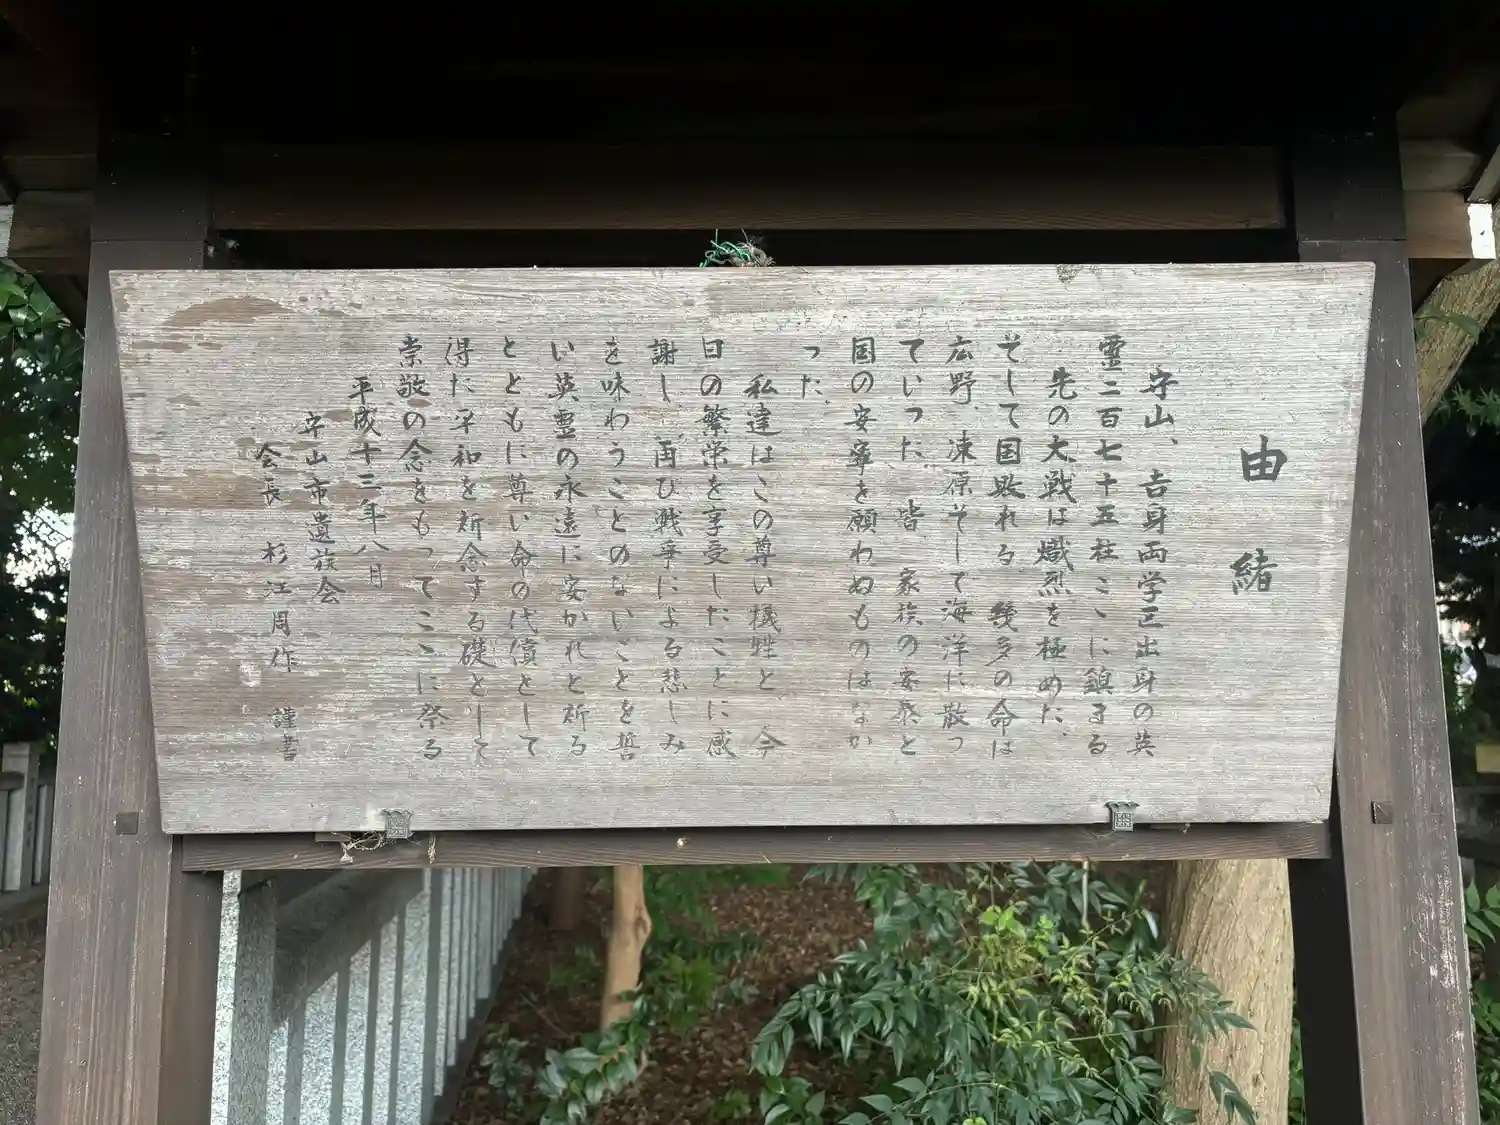 由緒
守山、吉身両学区出身の英
霊二百七十五柱こゝに鎮まる
先の大戦は熾烈を極めた、
そして国敗れる、幾多の命は
広野、凍原そして海洋に散っ
ていった、皆、家族の安泰と
国の安寧を願わぬものはなか
った、
私達はこの尊い犠牲と、今
日の繁栄を享受したことに感
謝し、再び戦争による悲しみ
を味わうことのないことを誓
い英霊の永遠に安かれと祈る
とともに尊い命の代償として
得た平和を祈念する礎として
崇敬の念をもってこゝに祭る
平成十三年八月
守山市遺族会
会長 杉江周作 謹書